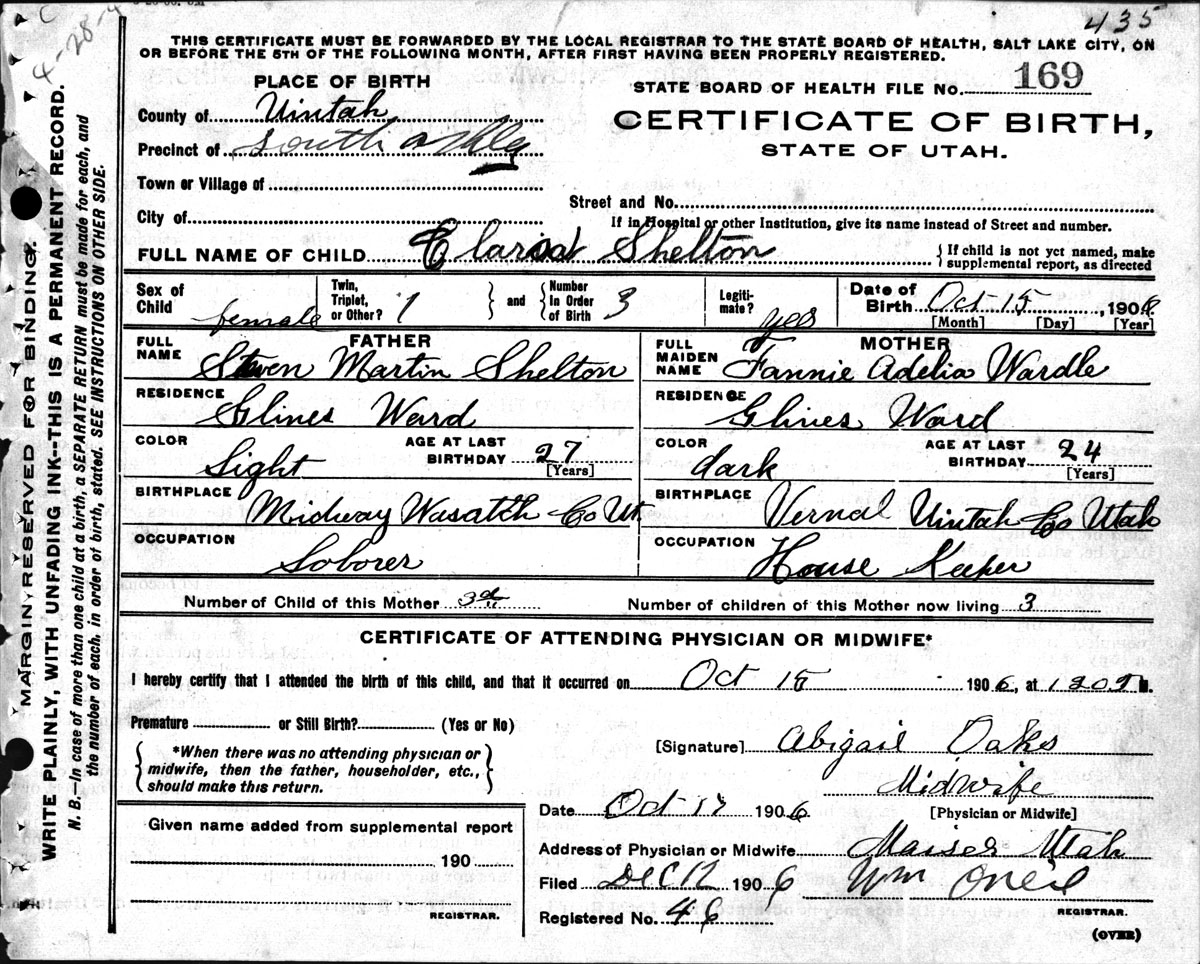 435
THIS CERTIFICATE MUST BE FORWARDED BY THE LOCAL REGISTRAR TO THE STATE BOARD OF HEALTH, SALT LAKE CITY, ON
OR BEFORE THE 5TH OF THE FOLLOWING MONTH, AFTER FIRST HAVING BEEN PROPERLY REGISTERED.
PLACE OF BIRTH
STATE BOARD OF HEALTH FILE No. 169
County of Uintah
CERTIFICATE OF BIRTH,
Precinct of South Ashley
STATE OF UTAH.
Town or Village of
Street and No.
City of
If in Hospital or other Institution, give its name instead of Street and number.
FULL NAME OF CHILD Shelton
{If child is not yet named, make
supplemental report, as directed
Sex of Child female
Twin, Triplet, or Other? 1
and
Number In Order of Birth 3
Legiti-mate? yes
Date of Birth Oct 15, 1906
[Month] [Day] [Year]
FATHER
FULL NAME Steven Martin Shelton
RESIDENCE
Glines Ward
COLOR Light
AGE AT LAST BIRTHDAY 27
[Years]
BIRTHPLACE
Midway Wasatch Co Ut
OCCUPATION
Loborer
MOTHER
FULL MAIDEN NAME Fannie Adelia Wardle
RESIDENCE
Glines Ward
COLOR dark
AGE AT LAST BIRTHDAY 24
[Years]
BIRTHPLACE
Vernal Uintah Co Utah
OCCUPATION
House Keeper
Number of Child of this Mother 3d
Number of children of this Mother now living 3
CERTIFICATE OF ATTENDING PHYSICIAN OR MIDWIFE*
I hereby certify that I attended the birth of this child, and that it occurred on Oct 15 1906, at M.
Premature or Still Birth? (Yes or No)
{*When there was no attending physician or
midwife, then the father, householder, etc.,
should make this return.}
[Signature] Abigail Oaks
Midwife
[Physician or Midwife]
Date Oct 17 1906
Address of Physician or Midwife Maiser Utah
Filed DEC 12 1906 Wm Oneil
REGISTRAR.
Registered No. 46
(OVER)
Given name added from supplemental report
190
REGISTRAR.
MARGIN RESERVED FOR BINDING.
WRITE PLAINLY, WITH UNFADING INK--THIS IS A PERMANENT RECORD.
N. B.—In case of more than one child at a birth, a SEPARATE RETURN must be made for each, and
the number of each, in order of birth, stated. SEE INSTRUCTIONS ON OTHER SIDE.